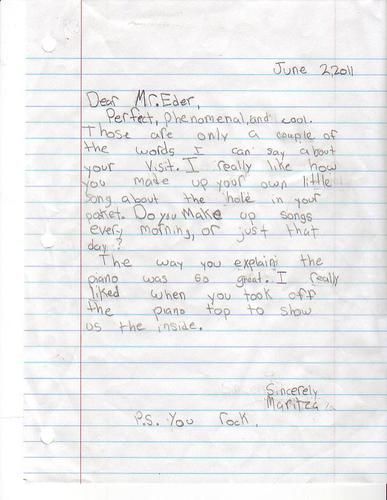 June 2,2011
Dear Mr.Eder,
Perfect, phenomenal,and cool.
Those are only a couple of
the words I can say about
your visit. I really like how
you made up your own little
song about the hole in your
pocket. Do you Make up songs
every morning, or just that
day?
The way you explain the
piano was so great. I really
liked when you took off
the piano top to show
us the inside.
Sincerely
Maritza
P.S. You rock.